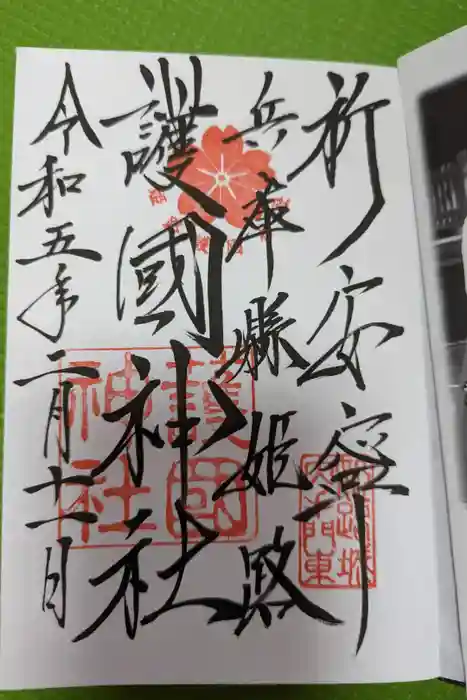 祈安寧
兵庫縣姫路
護國神社
令和五年二月十一日
護國
神社
路城
門東